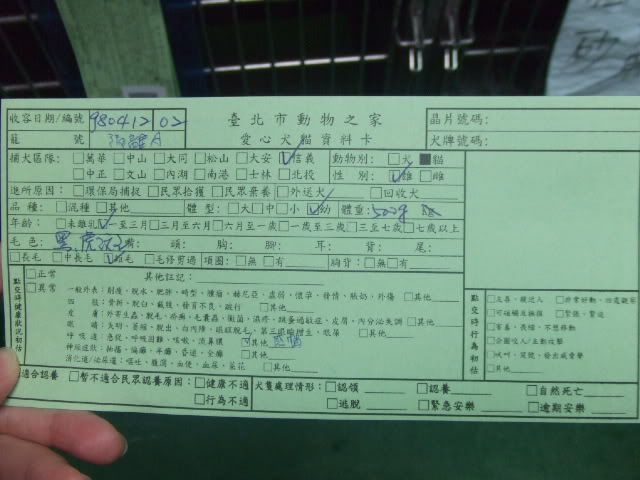 收容日期/編號 980412 02 臺北市動物之家 晶片號碼:
籠 號 愛心犬貓資料卡 犬牌號碼:
捕犬區隊: □萬華 □中山 □大同 □松山 □大安 ☑信義 動物別: □犬 ■貓
□中正 □文山 □內湖 □南港 □士林 □北投 性 別: ☑雄 □雌
進所原因: □環保局捕捉 □民眾拾獲 □民眾棄養 □外送犬 □回收犬
品 種: □混種 □其他 體 型: □大 □中 □小 ☑幼 體重: 500g
年齡: □未離乳 ☑一至三月 □三月至六月 □六月至一歲 □一歲至三歲 □三至七歲 □七歲以上
毛 色: 黑, 虎斑 嘴: 頭: 胸: 腳: 耳: 背: 尾:
□長毛 □中長毛 ☑短毛 □毛修剪過 項圈: □無 □有 胸背: □無 □有
點交時健康狀況初估 □正常 其他註記:
□異常 一般外表:削瘦、脫水、肥胖、畸型、腫瘤、赫尼亞、虛弱、懷孕、發情、脹奶、外傷 □其他
四 肢:骨折、脫臼、截肢、發育不良、跛行 □其他
皮 膚:外寄生蟲、脫毛、疥癬、毛囊蟲、黴菌、濕疹、跳蚤過敏症、皮屑、內分泌失調 □其他
眼 睛:失明、萎縮、脫出、白內障、眼瞼脫毛、第三眼瞼增生、眼屎 □其他
呼 吸 道:急促、呼吸困難、咳嗽、流鼻膿 ☑其他 感冒
神經症狀:抽搐、偏癱、半癱、昏迷、全癱 □其他
消化道/泌尿道:嘔吐、腹瀉、血便、血尿、尿花 □其他
點交時行為初估 □友善、親近人 □非常好動、四處觀察
□可碰觸並撫摸 □緊張、緊迫
□害羞、畏縮、不想移動
□企圖咬人/主動攻擊
□吠叫、咆哮、發出威脅聲
□其他
適合認養 □暫不適合民眾認養原因: □健康不適 犬隻處理情形: □認領 □認養 □自然死亡
□行為不適 □逃脫 □緊急安樂 □逾期安樂